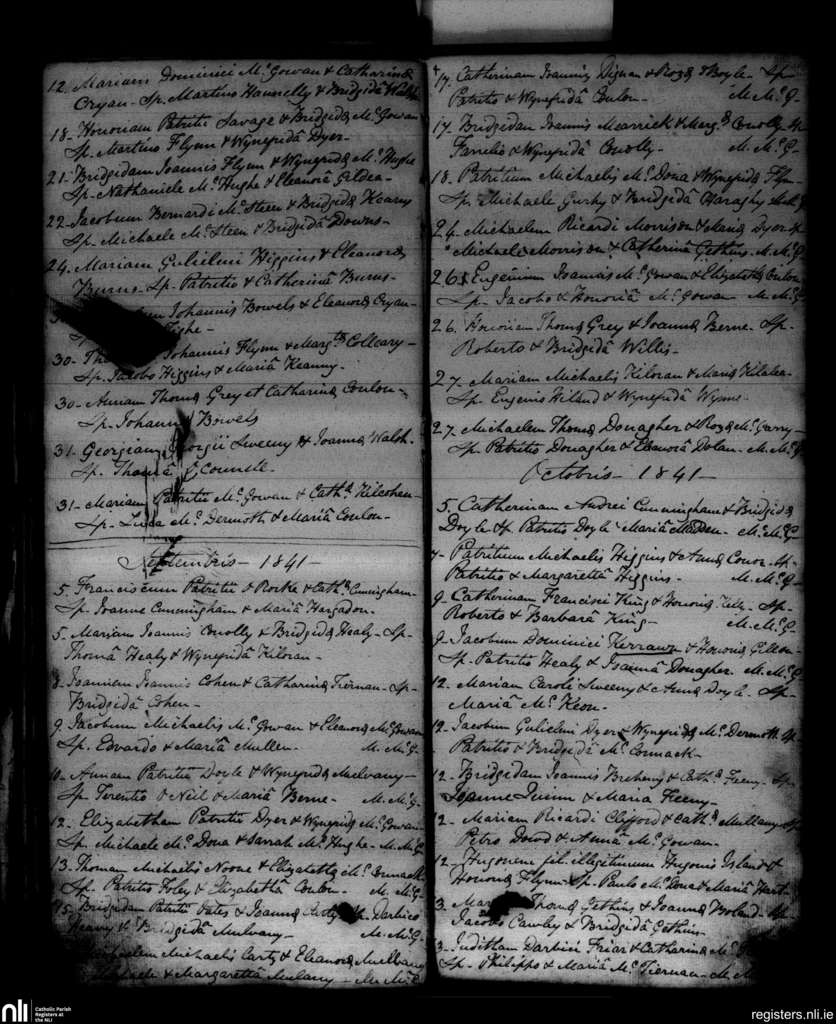 12. Mariam Dominici Mc Gowan & Catharinæ
Cryan - Sp. Martino Hannelly & Bridgidâ Walsh
18. Honoriam Patritii Savage & Bridgidæ Mc Gowan
Sp. Martino Flynn & Wynefridâ Dyer -
21. Bridgidam Ioannis Flynn & Wynefridæ Mc Hughe
Sp. Nathaniele Mc Hughe & Eleanorâ Gildea -
22. Jacobum Bernardi Mc Steen & Bridgidæ Kearns
Sp. Michaele Mc Steen & Bridgidâ Downs -
24. Mariam Gulielmi Higgins & Eleanoræ
Burns - Sp. Patritio & Catherinâ Burns -
Iohannis Bowels & Eleanoræ Cryan -
30 - Iohannis Flynn & Margtæ Colleary -
Sp. Jacobo Higgins & Mariâ Keanny -
30 - Annam Thomæ Grey et Catharinæ Conlon -
Sp. Iohanne Bowels
31. Georgium Georgii Sweeny & Ioannæ Walsh.
Sp. Thomâ
31 - Mariam Patritii Mc Gowan & Cathæ Kilcohen -
Sp. Luca Mc Dermoth & Mariâ Conlon -
Septembris - 1841 -
5. Franciscum Patritii O Rorke & Cathæ Cunningham -
Sp. Ioanne Cunningham & Mariâ Hargadon -
5. Mariam Ioannis Conolly & Bridgidæ Healy - Sp -
Thomâ Healy & Wynefridâ Kiloran -
8. Ioannem Ioannis Cohen & Catharinæ Tiernan - Sp -
Bridgidâ Cohen -
9. Jacobum Michaelis Mc Gowan & Eleanoræ Mc Gowan
Sp. Edvardo & Mariâ Mullen - M. Mc G -
10. Annam Patritii Doyle & Wynefridæ Mulvany -
Sp. Terentio O Neil & Mariâ Berne - M. Mc G -
12. Elizabetham Patritii Dyer & Wynefridæ Mc Gowan -
Sp. Michaele Mc Dona & Sarrah Mc Hughe - M. Mc G
13. Thomam Michaelis Noone & Elizabethæ Mc Cormack
Sp. Patritio Foley & Elizabethâ Conlon - M. Mc G -
15. Bridgidam Patritii Oates & Ioannæ Carty Sp. Darbieo
Heavy & Bridgidâ Mulvany - M. Mc G -
Michaelem Michaelis Carty & Eleanoræ Mullvany
Michaele & Margarettâ Mulany - M. Mc G
17. Catherinam Ioannis Dignan & Rozæ O Boyle - Sp -
Patritio & Wynefridâ Conlon - M. Mc G -
17. Bridgidam Ioannis Mearrick & Margtæ Conolly Sp
Farrelio & Wynefridâ Conolly - M. Mc G -
18. Patritium Michaelis Mc Dona & Wynefridæ Flyn -
Sp. Michaele Gurhy & Bridgidâ Haraghy
24. Michaelem Ricardi Morrison & Mariæ Dyer Sp
Michaele Morrison & Catherinâ Gethins - M. Mc G
26. Eugenium Ioannis Mc Gowan & Elizabethæ Conlon
Sp. Jacobo & Honoriâ Mc Gowan M. Mc G
26. Honoriam Thomæ Grey & Ioannæ Berne - Sp.
Roberto & Bridgidâ Willis -
27. Mariam Michaelis Kiloran & Mariæ Kilalea -
Sp. Eugenio Hiland & Wynefridâ Wynne -
27. Michaelem Thomæ Donagher & Rozæ Mc Garry -
Sp. Patritio Donagher & Eleanorâ Dolan - M. Mc G
Octobris - 1841 -
5. Catherinam Andrei Cunningham & Bridgidæ
Doyle Sp. Patritio Doyle Mariâ Madden - M. Mc G
7. Patritium Michaelis Higgins & Annæ Conor Sp.
Patritio & Margarettâ Higgins - M. Mc G -
9. Catherinam Francisci King & Honoriæ Kelly - Sp -
Roberto & Barbarâ King - M. Mc G -
9. Jacobum Dominici Kerrawn & Honoriæ Gillon -
Sp. Patritio Healy & Ioannâ Donagher. M. Mc G
12. Mariam Caroli Sweeny & Annæ Doyle - Sp -
Mariâ Mc Keon -
12. Jacobum Gulielmi Dyer & Wynefridæ Mc Dermoth Sp
Patritio & Bridgidâ Mc Cormack -
12. Bridgidam Ioannis Breheny & Cathæ Feeny - Sp
Ioanne Quinn & Maria Feeny -
12 - Mariam Ricardi Clyfford & Cathæ Mullany Sp
Petro Dowd & Annâ Mc Gowan -
12 - Hugonem fil. illegitimum Hugonis Island &
Honoriæ Flynn Sp. Paulo Mc Dona & Mariâ Hart
3. Thomæ Gethins & Ioannæ Boland Sp
Jacobo Cawley & Bridgidâ Gethins
3. Juditham Darbiei Friar & Catharinæ
Sp. Philippo & Mariâ Mc Tiernan - M. M
nli
Catholic Parish
Registers at
the NLI
registers.nli.ie